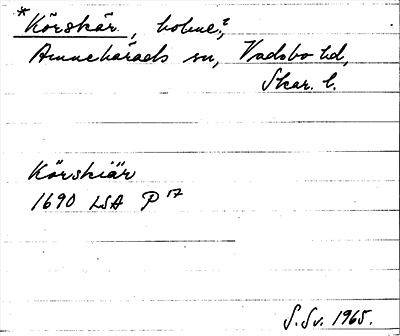 *Körskär, holme?,
Amnehärads sn, Vadsbo hd,
Skar. l.
Körskiär
1690 LSA P 17
S. Sv. 1965.